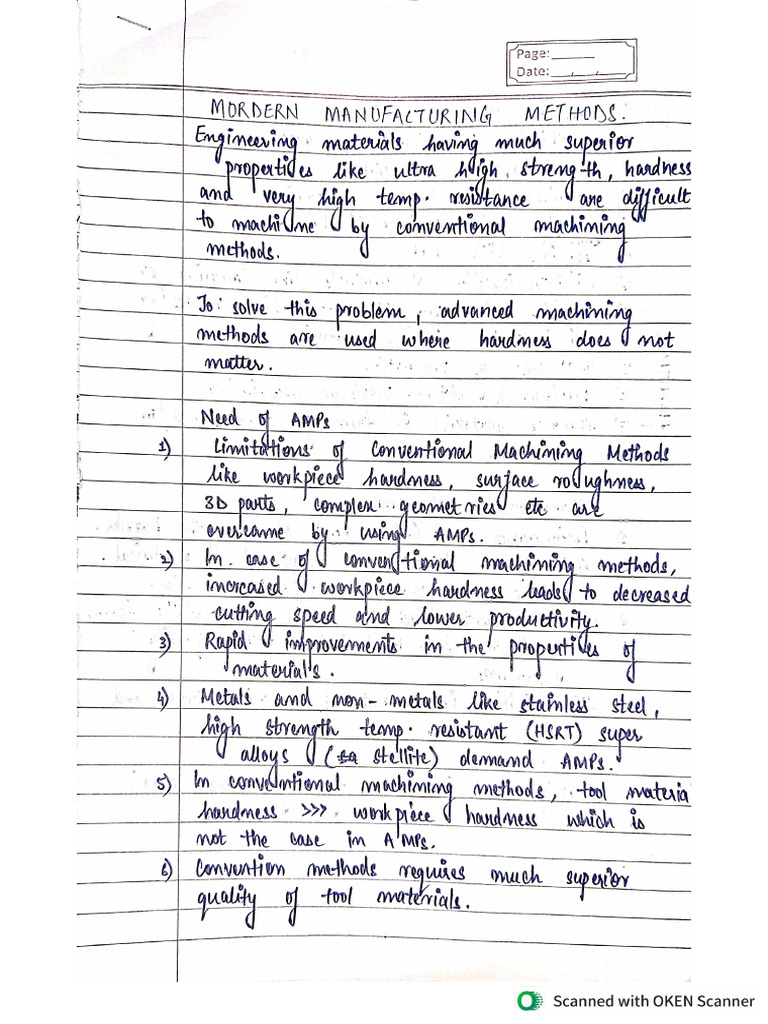 Page:
Date:
MORDERN MANUFACTURING METHODS.
Engineering materials having much superior
properties like ultra high strength, hardness
and very high temp. resistance are difficult
to machine by conventional machining
methods.
To solve this problem, advanced machining
methods are used where hardness does not
matter.
Need of AMPs
1) Limitations of Conventional Machining Methods
like workpiece hardness, surface roughness,
3D parts, complex geometries etc are
overcame by using AMPs.
2) In case of conventional machining methods,
increased workpiece hardness leads to decreased
cutting speed and lower productivity.
3) Rapid improvements in the properties of
materials.
4) Metals and non-metals like stainless steel,
high strength temp. resistant (HSRT) super
alloys (stellite) demand AMPs.
5) In conventional machining methods, tool materia
hardness >>> workpiece hardness which is
not the case in AMPs.
6) Convention methods requires much superior
quality of tool materials.
Scanned with OKEN Scanner